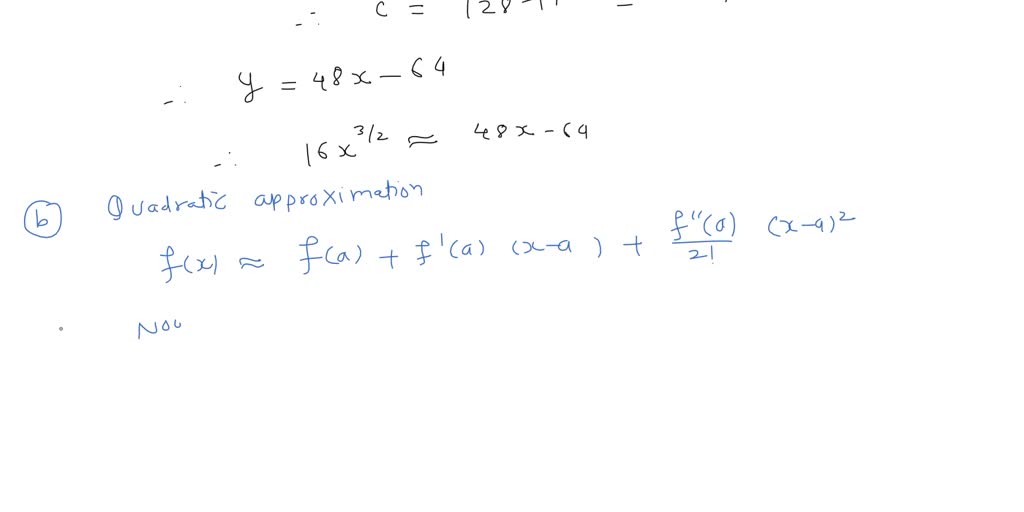 ∴ c = 128-1
∴ y = 48x - 64
∴ 16x^{3/2} ≈ 48x - 64
(b) Quadratic approximation
f(x) ≈ f(a) + f'(a) (x-a) + f''(a)/2! (x-a)^2